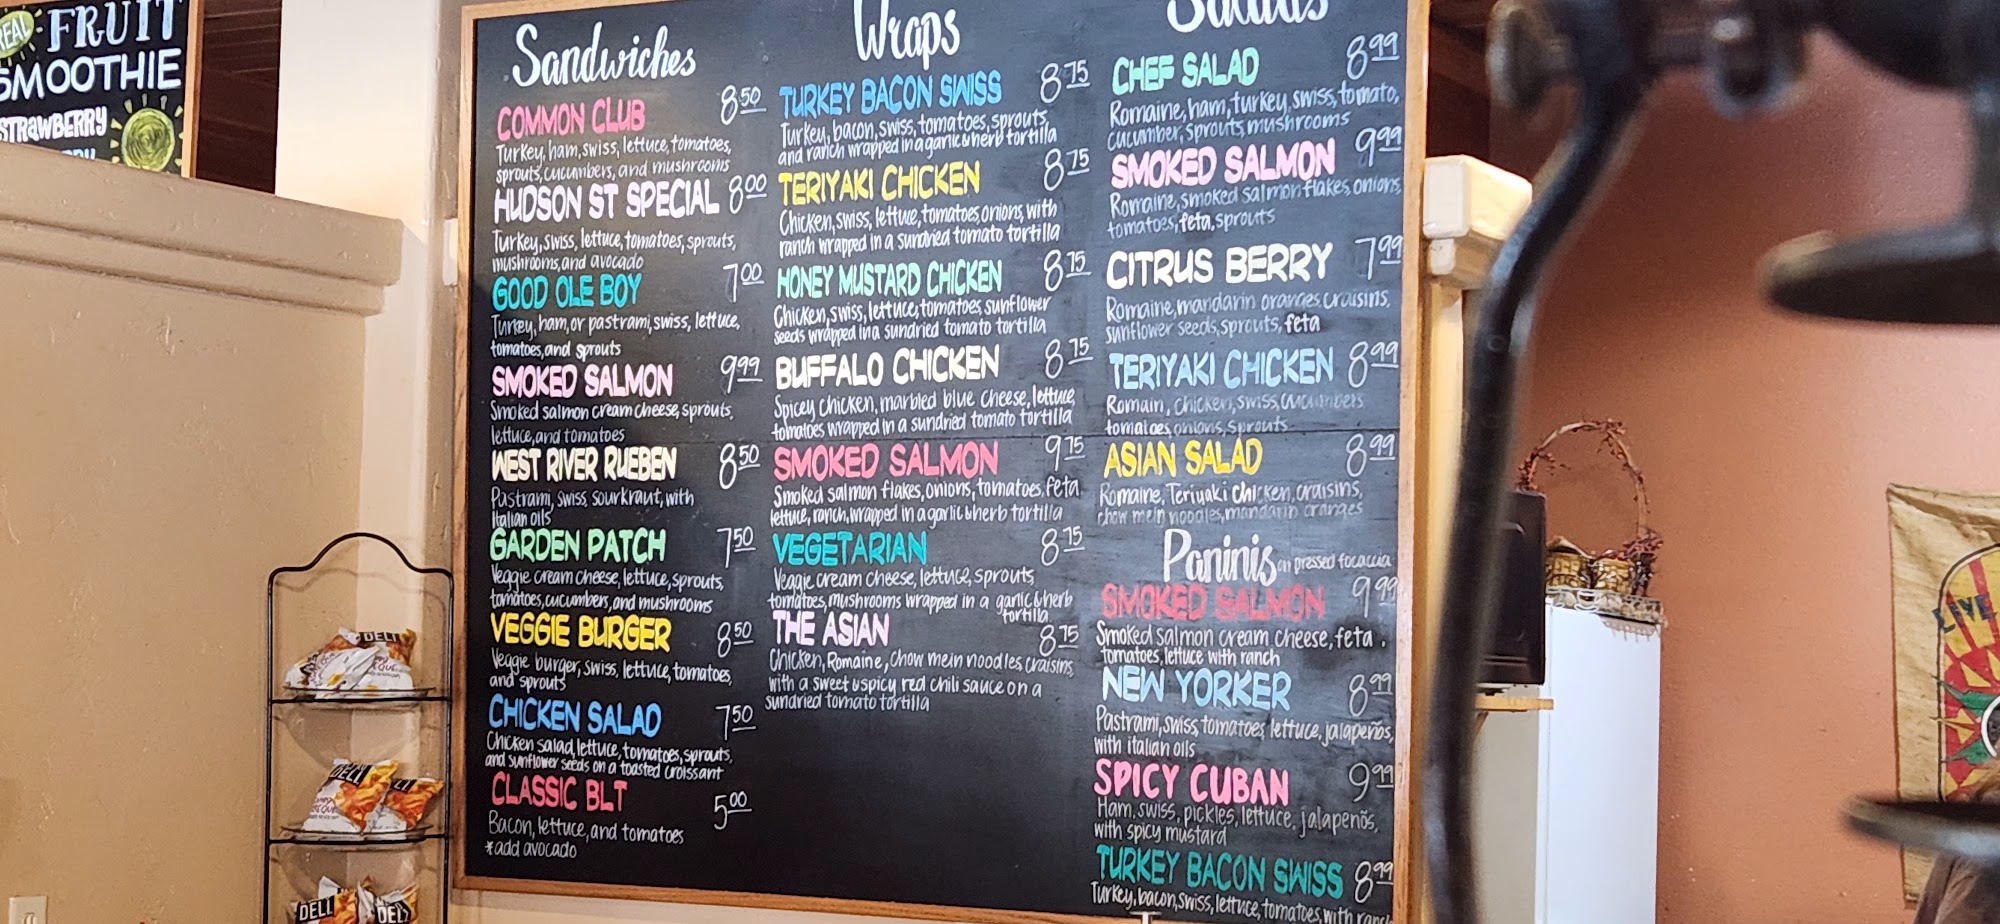 REAL FRUIT
SMOOTHIE
STRAWBERRY
Sandwiches
COMMON CLUB 8.50
Turkey, ham, swiss, lettuce, tomatoes,
sprouts, cucumbers, and mushrooms
HUDSON ST SPECIAL 8.00
Turkey, swiss, lettuce, tomatoes, sprouts,
mushrooms, and avocado
GOOD OLE BOY 7.00
Turkey, ham, or pastrami, swiss, lettuce,
tomatoes, and sprouts
SMOKED SALMON 9.99
Smoked salmon cream cheese, sprouts,
lettuce, and tomatoes
WEST RIVER RUEBEN 8.50
Pastrami, swiss, sourkraut, with
Italian oils
GARDEN PATCH 7.50
Veggie cream cheese, lettuce, sprouts,
tomatoes, cucumbers, and mushrooms
VEGGIE BURGER 8.50
Veggie burger, swiss, lettuce, tomatoes,
and sprouts
CHICKEN SALAD 7.50
Chicken salad, lettuce, tomatoes, sprouts,
and sunflower seeds on a toasted croissant
CLASSIC BLT 5.00
Bacon, lettuce, and tomatoes
*add avocado
Wraps
TURKEY BACON SWISS 8.75
Turkey, bacon, swiss, tomatoes, sprouts,
and ranch wrapped in a garlic & herb tortilla
TERIYAKI CHICKEN 8.75
Chicken, swiss, lettuce, tomatoes, onions, with
ranch wrapped in a sundried tomato tortilla
HONEY MUSTARD CHICKEN 8.75
Chicken, swiss, lettuce, tomatoes, sunflower
seeds wrapped in a sundried tomato tortilla
BUFFALO CHICKEN 8.75
Spicey chicken, marbled blue cheese, lettuce,
tomatoes wrapped in a sundried tomato tortilla
SMOKED SALMON 9.75
Smoked salmon flakes, onions, tomatoes, feta
lettuce, ranch, wrapped in a garlic & herb tortilla
VEGETARIAN 8.75
Veggie cream cheese, lettuce, sprouts,
tomatoes, mushrooms wrapped in a garlic & herb
tortilla
THE ASIAN 8.75
Chicken, Romaine, Chow mein noodles craisins,
with a sweet & spicy red chili sauce on a
sundried tomato tortilla
Salads
CHEF SALAD 8.99
Romaine, ham, turkey, swiss, tomato,
cucumber, sprouts, mushrooms
SMOKED SALMON 9.99
Romaine, smoked salmon flakes, onions,
tomatoes, feta, sprouts
CITRUS BERRY 7.99
Romaine, mandarin oranges, craisins,
sunflower seeds, sprouts, feta
TERIYAKI CHICKEN 8.99
Romain, chicken, swiss, cucumbers
tomatoes, onions, sprouts
ASIAN SALAD 8.99
Romaine, Teriyaki chicken, craisins,
chow mein noodles, mandarin oranges
Paninis on pressed focaccia
SMOKED SALMON 9.99
Smoked salmon cream cheese, feta,
tomatoes, lettuce with ranch
NEW YORKER 8.99
Pastrami, swiss, tomatoes, lettuce, jalapeños,
with italian oils
SPICY CUBAN 9.99
Ham, swiss, pickles, lettuce, jalapeños,
with spicy mustard
TURKEY BACON SWISS 8.99
Turkey, bacon, swiss, lettuce, tomatoes, with ranch
LIVE
DELI
DELI
DELI
DELI